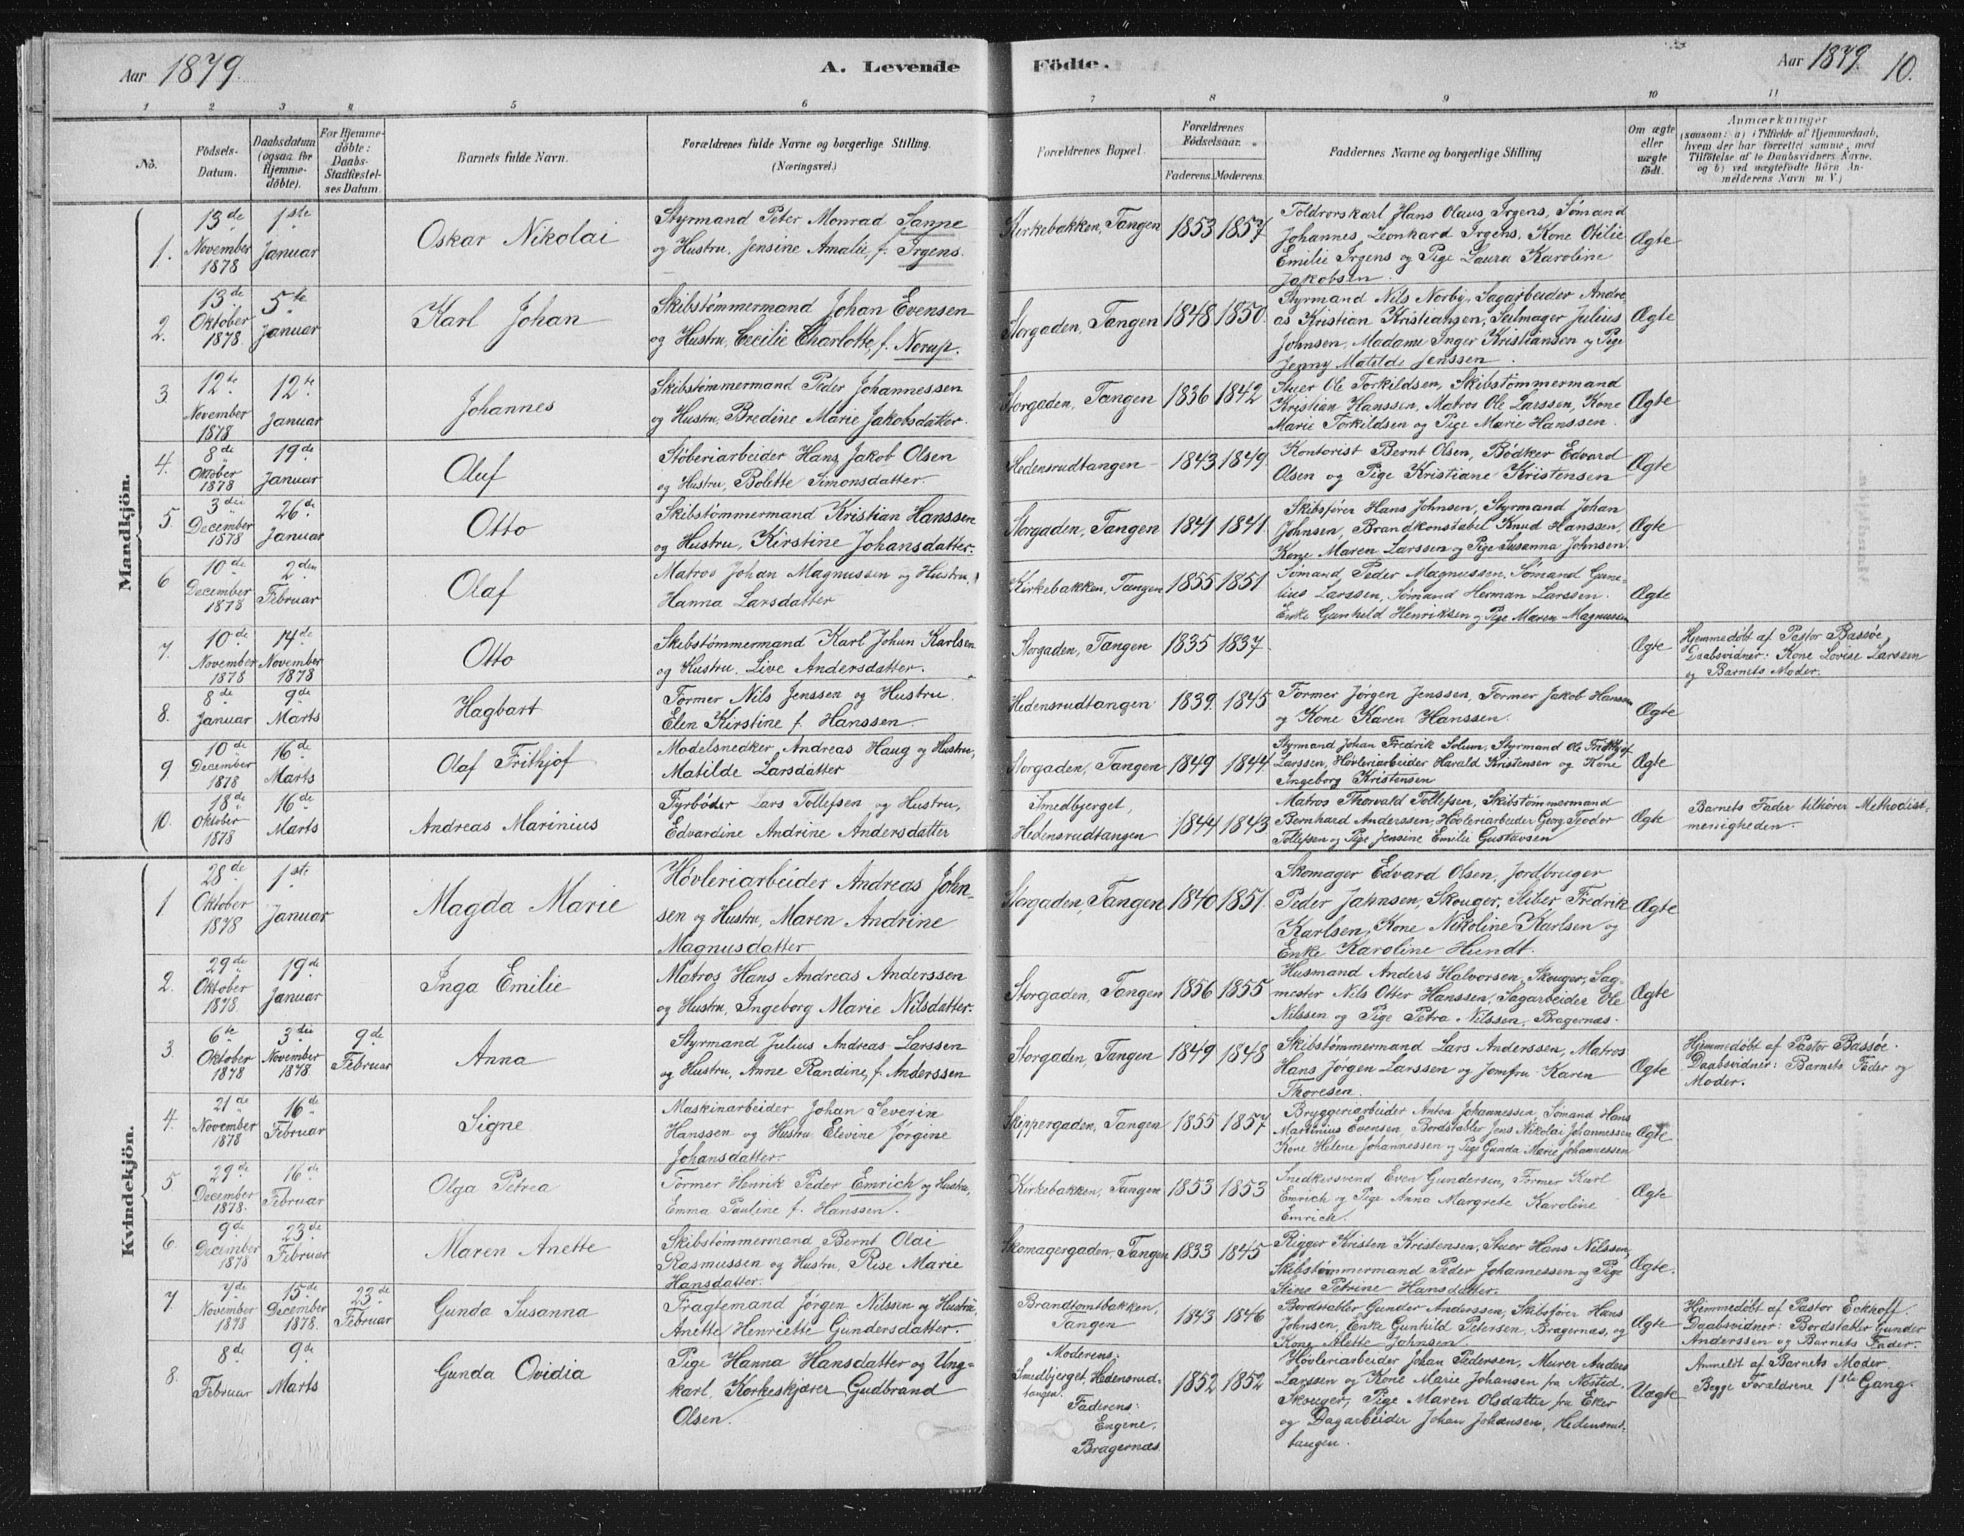 Aar 1879. A. Levende Födte. Aar 1879. 10.
1 2 3 4 5 6 7 8 9 10 11
No. Födsels-Datum. Daabsdatum (ogsaa for Hjemmedöbte). For Hjemmedöbte: Daabs-Stadfæstelses Datum. Barnets fulde Navn. Forældrenes fulde Navne og borgerlige Stilling. (Næringsvei.) Forældrenes Bopæl. Forældrenes Födselsaar. Faderens. Moderens. Faddernes Navne og borgerlige Stilling Om ægte eller uægte födt. Anmærkninger (saasom: a) i Tilfælde af Hjemmedaab, hvem der har forrettet samme, med Tilföielse af to Daabsvidners Navne, og b) ved uægtefödte Börn Anmelderens Navn m V.)
Mandkjön.
1. 13de November 1878 1ste Januar Oskar Nikolai Styrmand Peter Monrad Sanne og Hustru, Jensine Amalie, f. Irgens. Kirkebakken, Tangen 1853 1857 Toldrorskarl Hans Olaus Irgens, Sømand Johannes Leonhard Irgens, Kone Otilie Emilie Irgens og Pige Laura Karoline Jakobsen Ægte
2. 13de Oktober 1878 5te Januar Karl Johan Skibstømmermand Johan Evensen og Hustru, Cecilie Charlotte, f. Norup. Storgaden, Tangen 1848 1850. Styrmand Nils Norby, Sagarbeider Andreas Kristian Kristiansen, Seilmager Julius Johnsen, Madame Inger Kristiansen og Pige Jenny Matilde Jenssen. Ægte
3. 12te November 1878 12te Januar Johannes Skibstømmermand Peder Johannessen og Hustru, Bredine Marie Jakobsdatter. Storgaden, Tangen 1836 1842 Stuer Ole Torkildsen, Skibstømmermand Kristian Hanssen, Matros Ole Larssen, Kone Marie Torkildsen og Pige Marie Hanssen. Ægte
4. 8de Oktober 1878 19de Januar Oluf Støberiarbeider Hans Jakob Olsen og Hustru, Bolette Simonsdatter. Hedensrudtangen 1843 1849. Kontorist Bernt Olsen, Bødker Edvard Olsen og Pige Kristiane Kristensen Ægte
5. 3die December 1878 26de Januar Otto Skibstømmermand Kristian Hanssen og Hustru, Kirstine Johansdatter. Storgaden, Tangen 1841 1841 Skibsfører Hans Johnsen, Styrmand Johan Johnsen, Brandkonstabel Knud Hanssen, Kone Maren Larssen og Pige Susanna Johnsen. Ægte
6 10de December 1878 2den Februar Olaf Matros Johan Magnussen og Hustru, Hanna Larsdatter Kirkebakken, Tangen 1855 1851 Sømand Peder Magnussen, Sømand Gunelius Larssen, Sømand Herman Larssen. Enke Gunhild Henriksen og Pige Maren Magnussen Ægte
7. 10de November 1878 14de November 1878 Otto Skibstømmermand Karl Johan Karlsen og Hustru. Live Andersdatter. Storgaden, Tangen 1835 1837. Ægte Hjemmedøbt af Pastor Bassøe, Daabsvidner: Kone Lovise Larssen og Barnets Moder.
8. 8de Januar 9de Marts Hagbart Former Nils Jenssen og Hustru. Elen Kirstine f. Hanssen. Hedensrudtangen 1839. 1845 Former Jørgen Jenssen, Former Jakob Hansen og Kone Karen Hanssen. Ægte
9 10de December 1878 16de Marts Olaf Frithjof Modelsnedker Andreas Haug og Hustru, Matilde Larsdatter Storgaden, Tangen 1849 1844. Styrmand Johan Fredrik Solum, Styrmand Ole Frithjof Larssen, Høvleriarbeider Harald Kristensen og Kone Ingeborg Kristensen Ægte
10. 18de Oktober 1878 16de Marts Andreas Marinius Fyrbøder Lars Tollefsen og Hustru, Edvardine Andrine Andersdatter Smedbjerget, Hedensrudtangen 1844 1843 Matros Thorvald Tollefsen, Skibstømmermand Bernhard Anderssen, Høvleriarbeider Georg Teodor Tollefsen og Pige Jensine Emilie Gustavsen Ægte Barnets Fader tilhører Methodistmenigheden.
Kvindekjön.
1 28de Oktober 1878 1ste Januar Magda Marie Høvleriarbeider Andreas Johnsen og Hustru, Maren Andrine Magnusdatter Storgaden, Tangen 1840 1851. Skomager Edvard Olsen, Jordbruger Peder Jahnsen, Skouger, Stiber Fredrik Karlsen, Kone Nikoline Karlsen og Enke Karoline Hundt. Ægte
2. 29de Oktober 1878. 19de Januar Inga Emilie Matros Hans Andreas Anderssen og Hustru, Ingeborg Marie Nilsdatter. Storgaden, Tangen 1856 1855 Husmand Anders Halvorsen, Skouger, Sagmester Nils Otter Hanssen, Sagarbeider Ole Nilssen og Pige Petra Nilssen, Bragernæs. Ægte
3. 6te Oktober 1878 3die November 1878 9de Februar Anna Styrmand Julius Andreas Larssen og Hustru, Anne Randine, f. Anderssen Storgaden, Tangen 1849 1848 Skibstømmermand Lars Anderssen, Matros Hans Jørgen Larssen og Jomfru Karen Thoresen. Ægte Hjemmedøbt af Pastor Bassøe. Daabsvidner: Barnets Fader og Moder.
4. 21de November 1878 16de Februar Signe Maskinarbeider Johan Severin Hanssen og Hustru Elevine Jørgine Johansdatter. Skippergaden, Tangen 1855 1857 Bryggeriarbeider Anton Johannessen, Sømand Hans Martinius Evensen, Bordstabler Jens Nikolai Johannessen Kone Helene Johannessen og Pige Gunda Marie Johannessen Ægte
5 29de December 1878. 16de Februar Olga Petrea Former Henrik Peder Emrich og Hustru, Emma Pauline f. Hanssen. Kirkebakken, Tangen 1853 1853 Snedkersvend Even Gundersen, Former Karl Emrich og Pige Anna Margrete Karoline Emrich. Ægte
6. 9de December 1878 23de Februar Maren Anette Skibstømmermand Bernt Olai Rasmussen og Hustru, Rise Marie Hansdatter. Skomagergaden, Tangen 1833 1845 Rigger Kristen Kristensen, Stuer Hans Nilssen, Skibstømmermand Peder Johannessen og Pige Stine Petrine Hansdatter. Ægte.
7. 7de November 1878 15de December 1878. 23de Februar Gunda Susanna Fragtemand Jørgen Nilssen og Hustru Anette Henriette Gundersdatter. Brandtomtbakken, Tangen 1843 1846 Bordstabler Gunder Anderssen, Skibsfører Hans Johnsen, Enke Gunhild Petersen, Bragernæs, og Kone Alette Jahnsen Ægte Hjemmedøbt af Pastor Eckhoff. Daabsvidner: Bordstabler Gunder Anderssen og Barnets Fader.
8. 8de Februar 9de Marts Gunda Ovidia Pige Hanna Hansdatter og Ungkarl, Korkeskjærer Gudbrand Olsen. Moderens: Smedbjerget Hedensrudtangen. Faderens: Engene, Bragernæs 1852 1852 Høvleriarbeider Johan Pedersen, Murer Anders Larssen og Kone Marie Johansen fra Nøsted, Skouger, Pige Maren Olsdatter fra Eker og Dagarbeider Johan Johansen, Hedensrudtangen. Uægte Anmeldt af Barnets Moder. Begge Forældrene 1ste Gang.